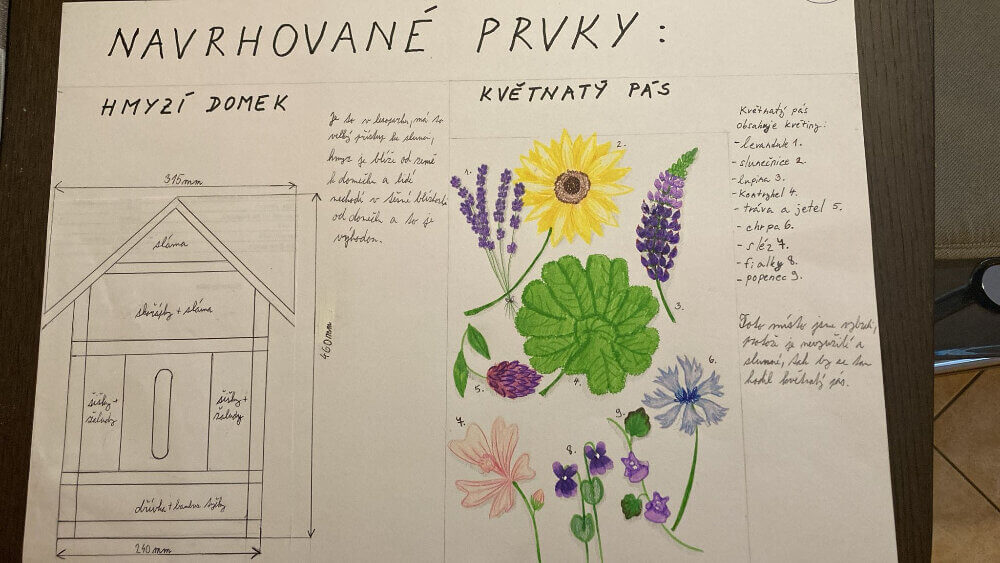 NAVRHOVANÉ PRVKY:
HMYZÍ DOMEK
Je to v lesoparku, má to
velký přístup ke slunci,
hmyz je blíže od země
k domečku a lidé
nechodí v těsné blízkosti
od domečku a to je
výhodou.
315mm
sláma
skořápky + sláma
šišky +
žaludy
šišky +
žaludy
dřívka + bambus tyčky
240 mm
460mm
KVĚTNATÝ PÁS
1.
2.
3.
4.
5.
6.
7.
8.
9.
Květnatý pás
obsahuje květiny:
- levandule 1.
- slunečnice 2.
- lupina 3.
- kontryhel 4.
- tráva a jetel 5.
- chrpa 6.
- sléz 7.
- fialky 8.
- popenec 9.
Toto místo jsme vybrali,
protože je nevyužité a
slunné, tak by se tam
hodil květnatý pás.